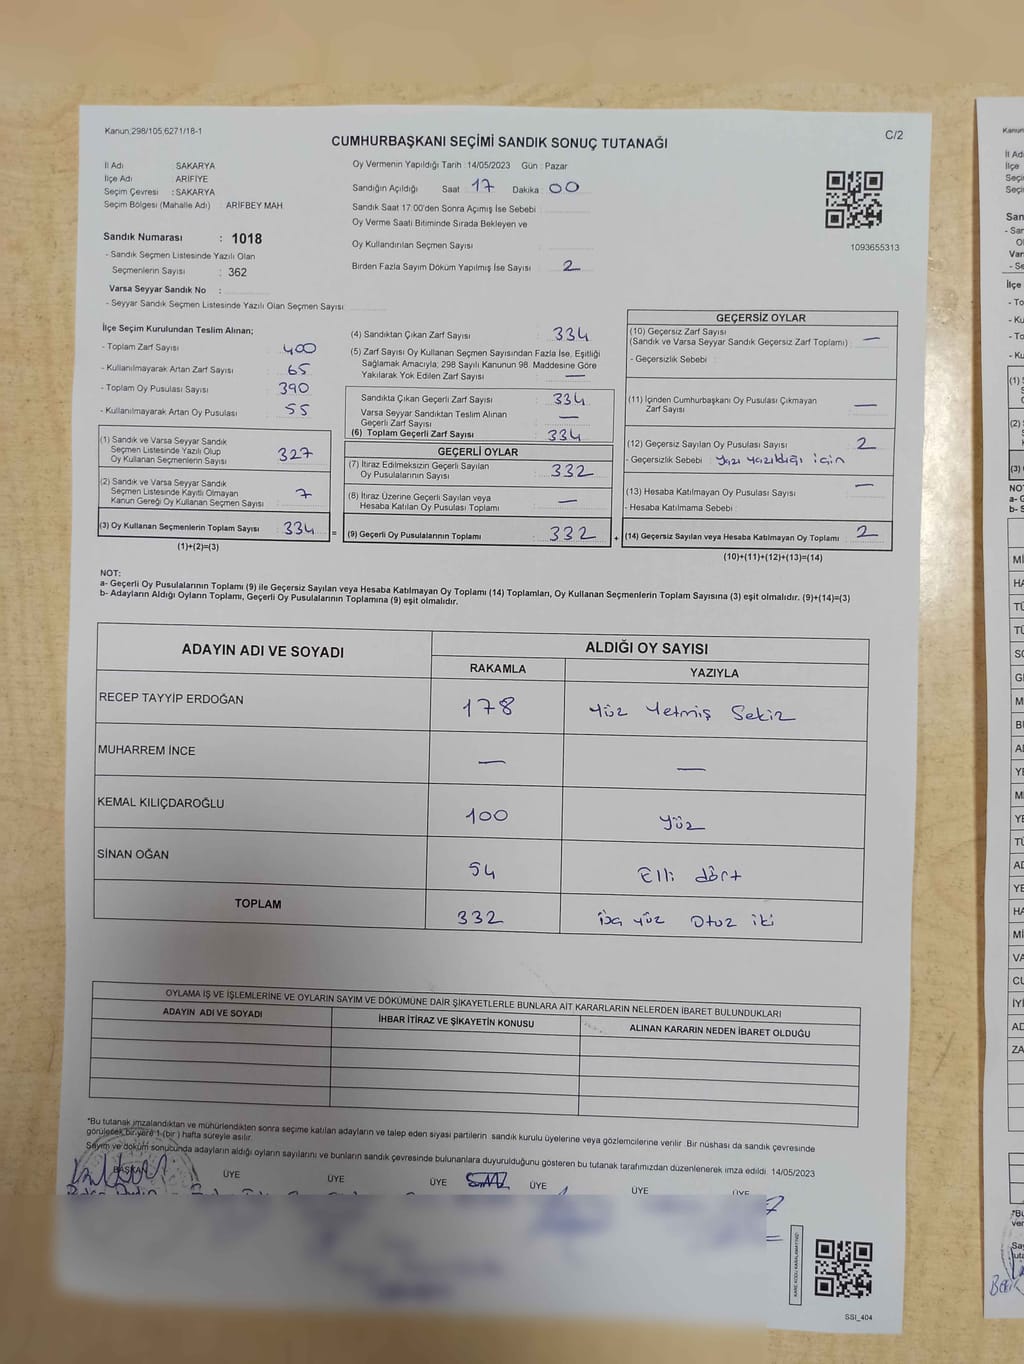 Kanun,298/105,6271/18-1
C/2
CUMHURBAŞKANI SEÇİMİ SANDIK SONUÇ TUTANAĞI
İl Adı SAKARYA
İlçe Adı ARİFİYE
Seçim Çevresi : SAKARYA
Seçim Bölgesi (Mahalle Adı) ARİFBEY MAH.
Sandık Numarası : 1018
- Sandık Seçmen Listesinde Yazılı Olan
Seçmenlerin Sayısı : 362
Varsa Seyyar Sandık No :
- Seyyar Sandık Seçmen Listesinde Yazılı Olan Seçmen Sayısı
Oy Vermenin Yapıldığı Tarih : 14/05/2023 Gün : Pazar
Sandığın Açıldığı Saat 17 Dakika : 00
Sandık Saat 17:00'den Sonra Açımış İse Sebebi :
Oy Verme Saati Bitiminde Sırada Bekleyen ve
Oy Kullandırılan Seçmen Sayısı :
Birden Fazla Sayım Döküm Yapılmış İse Sayısı : 2
1093655313
İlçe Seçim Kurulundan Teslim Alınan;
- Toplam Zarf Sayısı : 400
- Kullanılmayarak Artan Zarf Sayısı : 65
- Toplam Oy Pusulası Sayısı : 390
- Kullanılmayarak Artan Oy Pusulası : 55
(1) Sandık ve Varsa Seyyar Sandık
Seçmen Listesinde Yazılı Olup
Oy Kullanan Seçmenlerin Sayısı : 327
(2) Sandık ve Varsa Seyyar Sandık
Seçmen Listesinde Kayıtlı Olmayan
Kanun Gereği Oy Kullanan Seçmen Sayısı : 7
(3) Oy Kullanan Seçmenlerin Toplam Sayısı : 334 =
(1)+(2)=(3)
(4) Sandıktan Çıkan Zarf Sayısı : 334
(5) Zarf Sayısı Oy Kullanan Seçmen Sayısından Fazla İse, Eşitliği
Sağlamak Amacıyla; 298 Sayılı Kanunun 98. Maddesine Göre
Yakılarak Yok Edilen Zarf Sayısı : —
Sandıkta Çıkan Geçerli Zarf Sayısı : 334
Varsa Seyyar Sandıktan Teslim Alınan
Geçerli Zarf Sayısı : —
(6) Toplam Geçerli Zarf Sayısı : 334
GEÇERLİ OYLAR
(7) İtiraz Edilmeksizin Geçerli Sayılan
Oy Pusulalarının Sayısı : 332
(8) İtiraz Üzerine Geçerli Sayılan veya
Hesaba Katılan Oy Pusulası Toplamı : —
(9) Geçerli Oy Pusulalarının Toplamı : 332 +
GEÇERSİZ OYLAR
(10) Geçersiz Zarf Sayısı
(Sandık ve Varsa Seyyar Sandık Geçersiz Zarf Toplamı) : —
- Geçersizlik Sebebi :
(11) İçinden Cumhurbaşkanı Oy Pusulası Çıkmayan
Zarf Sayısı : —
(12) Geçersiz Sayılan Oy Pusulası Sayısı : 2
- Geçersizlik Sebebi : Yazı Yazıldığı için
(13) Hesaba Katılmayan Oy Pusulası Sayısı : —
- Hesaba Katılmama Sebebi :
(14) Geçersiz Sayılan veya Hesaba Katılmayan Oy Toplamı : 2
(10)+(11)+(12)+(13)=(14)
NOT:
a- Geçerli Oy Pusulalarının Toplamı (9) ile Geçersiz Sayılan veya Hesaba Katılmayan Oy Toplamı (14) Toplamları, Oy Kullanan Seçmenlerin Toplam Sayısına (3) eşit olmalıdır. (9)+(14)=(3)
b- Adayların Aldığı Oyların Toplamı, Geçerli Oy Pusulalarının Toplamına (9) eşit olmalıdır.
ADAYIN ADI VE SOYADI ALDIĞI OY SAYISI
RAKAMLA YAZIYLA
RECEP TAYYİP ERDOĞAN 178 Yüz Yetmiş Sekiz
MUHARREM İNCE — —
KEMAL KILIÇDAROĞLU 100 Yüz
SİNAN OĞAN 54 Elli dört
TOPLAM 332 üç yüz Otuz iki
OYLAMA İŞ VE İŞLEMLERİNE VE OYLARIN SAYIM VE DÖKÜMÜNE DAİR ŞİKAYETLERLE BUNLARA AİT KARARLARIN NELERDEN İBARET BULUNDUKLARI
ADAYIN ADI VE SOYADI İHBAR İTİRAZ VE ŞİKAYETİN KONUSU ALINAN KARARIN NEDEN İBARET OLDUĞU
*Bu tutanak imzalandıktan ve mühürlendikten sonra seçime katılan adayların ve talep eden siyasi partilerin sandık kurulu üyelerine veya gözlemcilerine verilir. Bir nüshası da sandık çevresinde
görülecek bir yere 1 (bir) hafta süreyle asılır.
Sayım ve döküm sonucunda adayların aldığı oyların sayılarını ve bunların sandık çevresinde bulunanlara duyurulduğunu gösteren bu tutanak tarafımızdan düzenlenerek imza edildi. 14/05/2023
BAŞKAN ÜYE ÜYE ÜYE ÜYE ÜYE ÜYE
KARE KODU KARALAMAYINIZ!
SSI_404